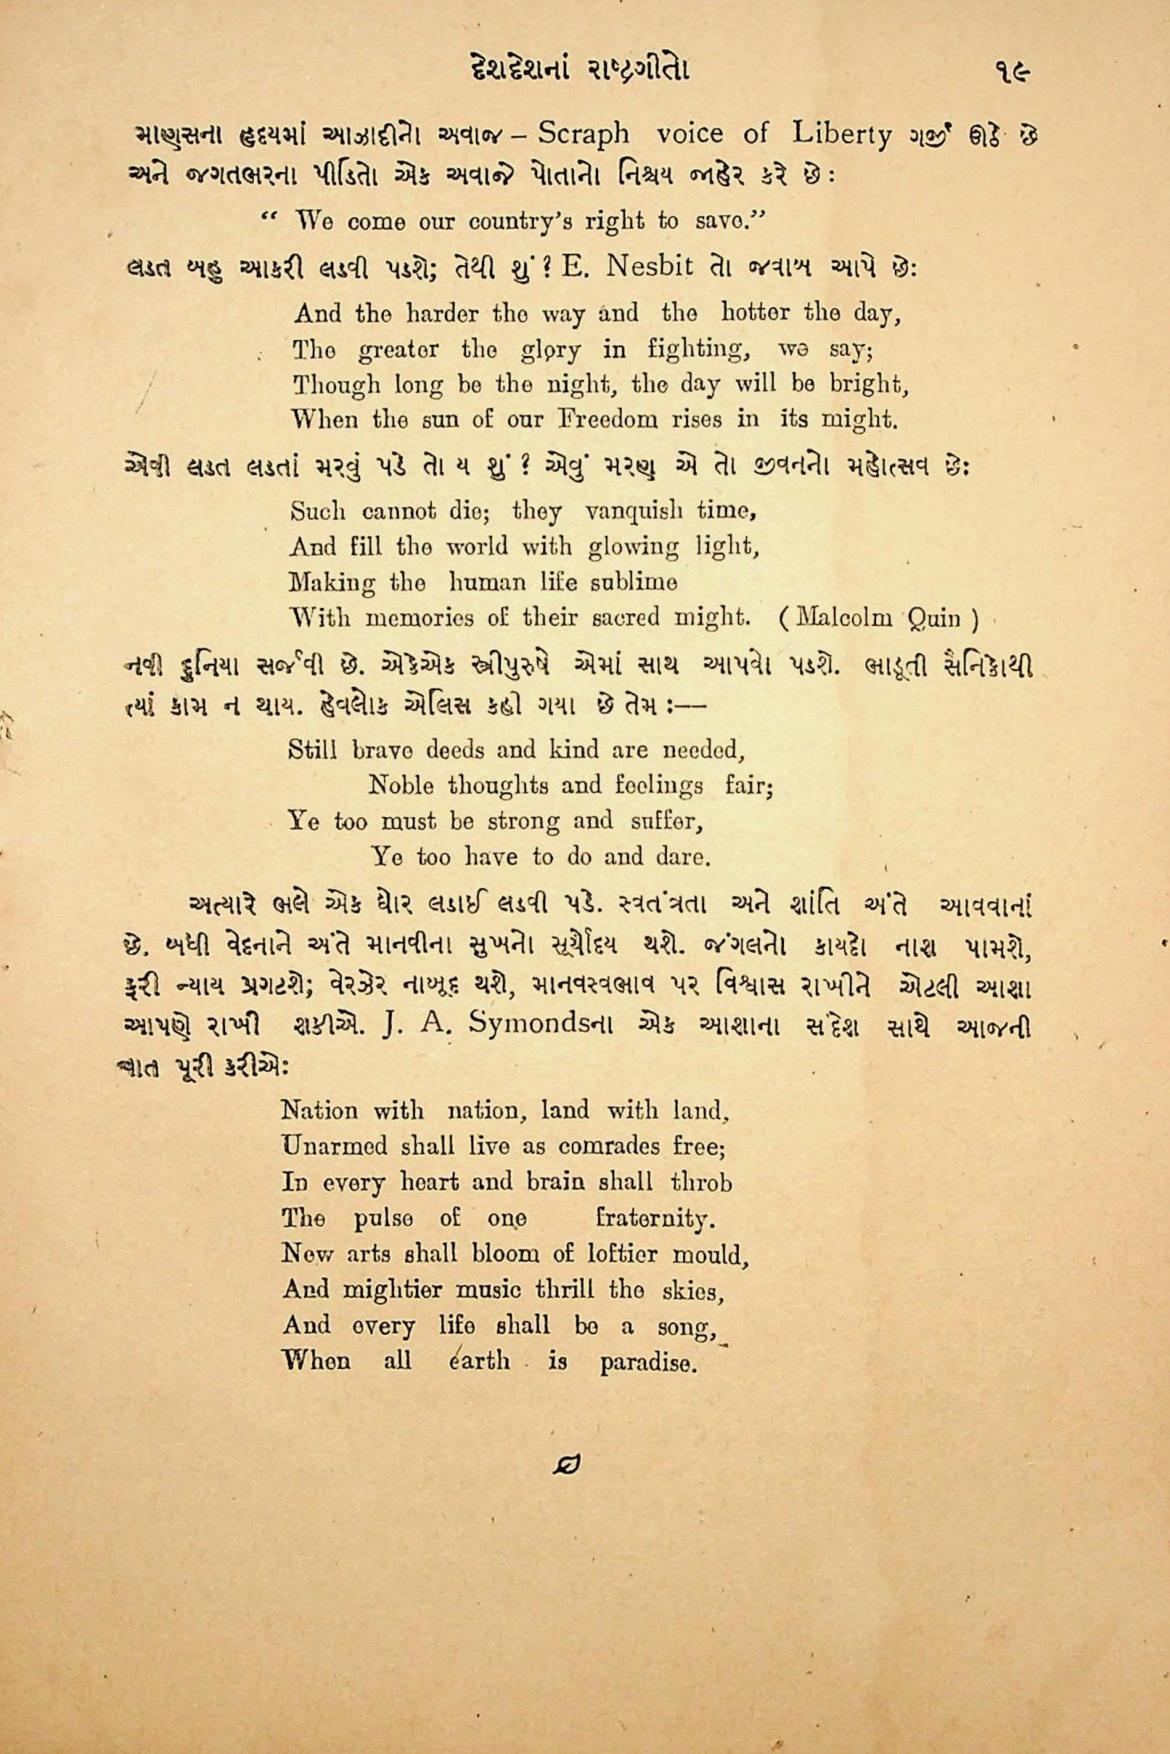 દેશદેશનાં રાષ્ટ્રગીતો ૧૯
માણસના હૃદયમાં આઝાદીનો અવાજ – Scraph voice of Liberty ગર્જી ઊઠે છે
અને જગતભરના પીડિતો એક અવાજે પોતાનો નિશ્ચય જાહેર કરે છે :
“ We come our country’s right to save.”
લડત બહુ આકરી લડવી પડશે; તેથી શું ? E. Nesbit તો જવાબ આપે છે:
And the harder the way and the hotter the day,
The greater the glory in fighting, we say;
Though long be the night, the day will be bright,
When the sun of our Freedom rises in its might.
એવી લડત લડતાં મરવું પડે તો ય શું ? એવું મરણ એ તો જીવનનો મહોત્સવ છે:
Such cannot die; they vanquish time,
And fill the world with glowing light,
Making the human life sublime
With memories of their sacred might. ( Malcolm Quin )
નવી દુનિયા સર્જવી છે. એકેએક સ્ત્રીપુરુષે એમાં સાથ આપવો પડશે. ભાડૂતી સૈનિકોથી
ત્યાં કામ ન થાય. હેવલોક એલિસ કહી ગયા છે તેમ :—
Still brave deeds and kind are needed,
Noble thoughts and feelings fair;
Ye too must be strong and suffer,
Ye too have to do and dare.
અત્યારે ભલે એક ઘોર લડાઈ લડવી પડે. સ્વતંત્રતા અને શાંતિ અંતે આવવાનાં
છે. બધી વેદનાને અંતે માનવીના સુખનો સૂર્યોદય થશે. જંગલનો કાયદો નાશ પામશે,
ફરી ન્યાય પ્રગટશે; વેરઝેર નાબૂદ થશે, માનવસ્વભાવ પર વિશ્વાસ રાખીને એટલી આશા
આપણે રાખી શકીએ. J. A. Symondsના એક આશાના સંદેશ સાથે આજની
વાત પૂરી કરીએ:
Nation with nation, land with land,
Unarmed shall live as comrades free;
In every heart and brain shall throb
The pulse of one fraternity.
New arts shall bloom of loftier mould,
And mightier music thrill the skies,
And every life shall be a song,
When all earth is paradise.